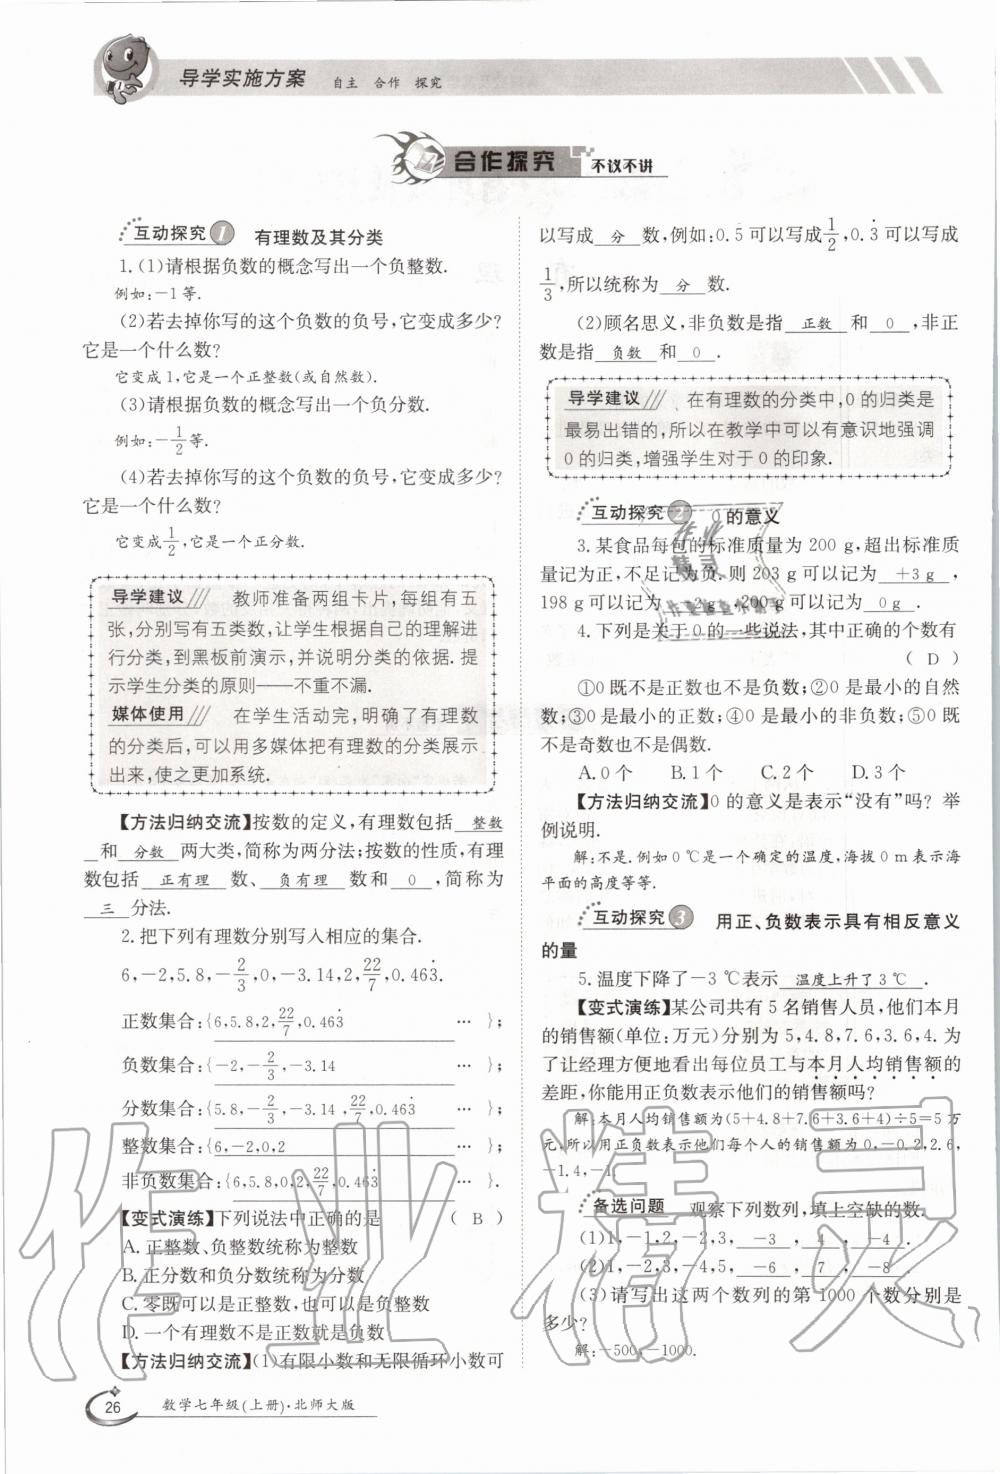 导学实施方案 自主 合作 探究
合作探究 不议不讲
互动探究1 有理数及其分类
1.(1)请根据负数的概念写出一个负整数.
例如:-1等.
(2)若去掉你写的这个负数的负号,它变成多少?
它是一个什么数?
它变成1,它是一个正整数(或自然数).
(3)请根据负数的概念写出一个负分数.
例如:-1/2等.
(4)若去掉你写的这个负数的负号,它变成多少?
它是一个什么数?
它变成1/2,它是一个正分数.
导学建议/// 教师准备两组卡片,每组有五
张,分别写有五类数,让学生根据自己的理解进
行分类,到黑板前演示,并说明分类的依据.提
示学生分类的原则——不重不漏.
媒体使用/// 在学生活动完,明确了有理数
的分类后,可以用多媒体把有理数的分类展示
出来,使之更加系统.
【方法归纳交流】按数的定义,有理数包括 整数
和 分数 两大类,简称为两分法;按数的性质,有理
数包括 正有理 数、 负有理 数和 0 ,简称为
三 分法.
2.把下列有理数分别写入相应的集合.
6,-2,5.8,-2/3,0,-3.14,2,22/7,0.463̇.
正数集合:{6,5.8,2,22/7,0.463̇ … };
负数集合:{-2,-2/3,-3.14 … };
分数集合:{5.8,-2/3,-3.14,22/7,0.463̇ … };
整数集合:{6,-2,0,2 … };
非负数集合:{6,5.8,0,2,22/7,0.463̇ … }.
【变式演练】下列说法中正确的是 ( B )
A.正整数、负整数统称为整数
B.正分数和负分数统称为分数
C.零既可以是正整数,也可以是负整数
D.一个有理数不是正数就是负数
【方法归纳交流】(1)有限小数和无限循环小数可
以写成 分 数,例如:0.5可以写成1/2,0.3̇可以写成
1/3,所以统称为 分 数.
(2)顾名思义,非负数是指 正数 和 0 ,非正
数是指 负数 和 0 .
导学建议/// 在有理数的分类中,0的归类是
最易出错的,所以在教学中可以有意识地强调
0的归类,增强学生对于0的印象.
互动探究2 0的意义
3.某食品每包的标准质量为200 g,超出标准质
量记为正,不足记为负.则203 g可以记为 +3 g ,
198 g可以记为 -2 g ,200 g可以记为 0 g .
4.下列是关于0的一些说法,其中正确的个数有
( D )
①0既不是正数也不是负数;②0是最小的自然
数;③0是最小的正数;④0是最小的非负数;⑤0既
不是奇数也不是偶数.
A.0个 B.1个 C.2个 D.3个
【方法归纳交流】0的意义是表示“没有”吗? 举
例说明.
解:不是.例如0 ℃是一个确定的温度,海拔0 m表示海
平面的高度等等.
互动探究3 用正、负数表示具有相反意义
的量
5.温度下降了-3 ℃表示 温度上升了3 ℃ .
【变式演练】某公司共有5名销售人员,他们本月
的销售额(单位:万元)分别为5,4.8,7.6,3.6,4.为
了让经理方便地看出每位员工与本月人均销售额的
差距,你能用正负数表示他们的销售额吗?
解:本月人均销售额为(5+4.8+7.6+3.6+4)÷5=5万
元,所以用正负数表示他们每个人的销售额为0,-0.2,2.6,
-1.4,-1.
备选问题 观察下列数列,填上空缺的数.
(1)1,-1,2,-2,3, -3 , 4 , -4 .
(2)1,-2,3,-4,5, -6 , 7 , -8 .
(3)请写出这两个数列的第1000个数分别是
多少?
解:-500,-1000.
26 数学七年级(上册)·北师大版
作业精灵